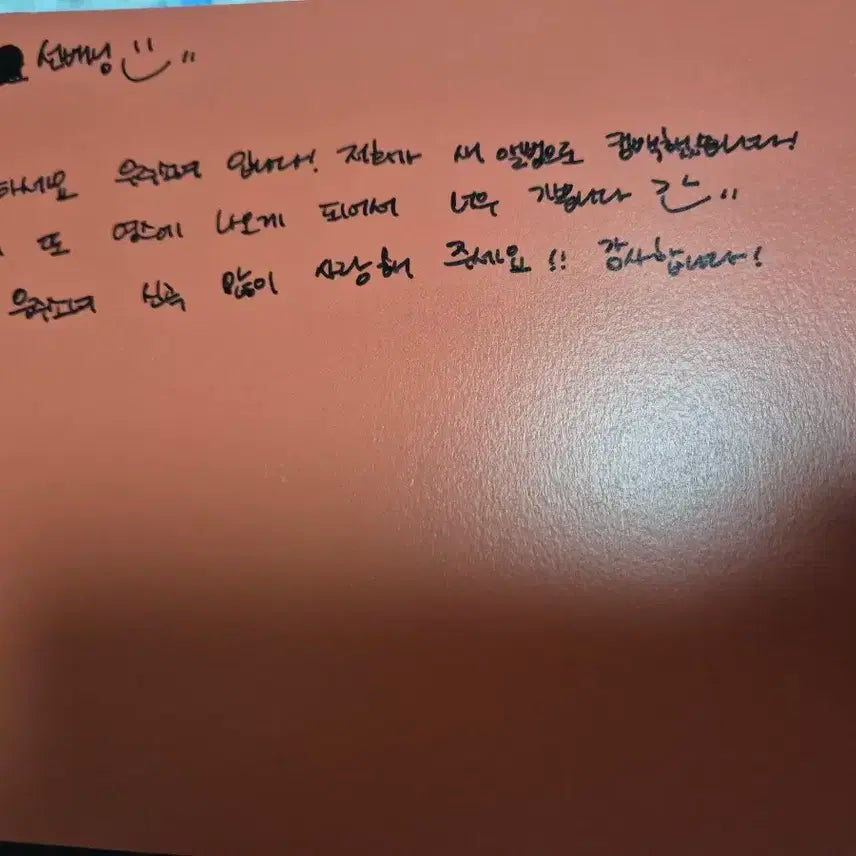 선배님
하세요 우주소녀 입니다! 저희가 새 앨범으로 컴백했습니다!
또 영스에 나오게 되어서 너무 기쁩니다
우주소녀 신곡 많이 사랑해 주세요!! 감사합니다!